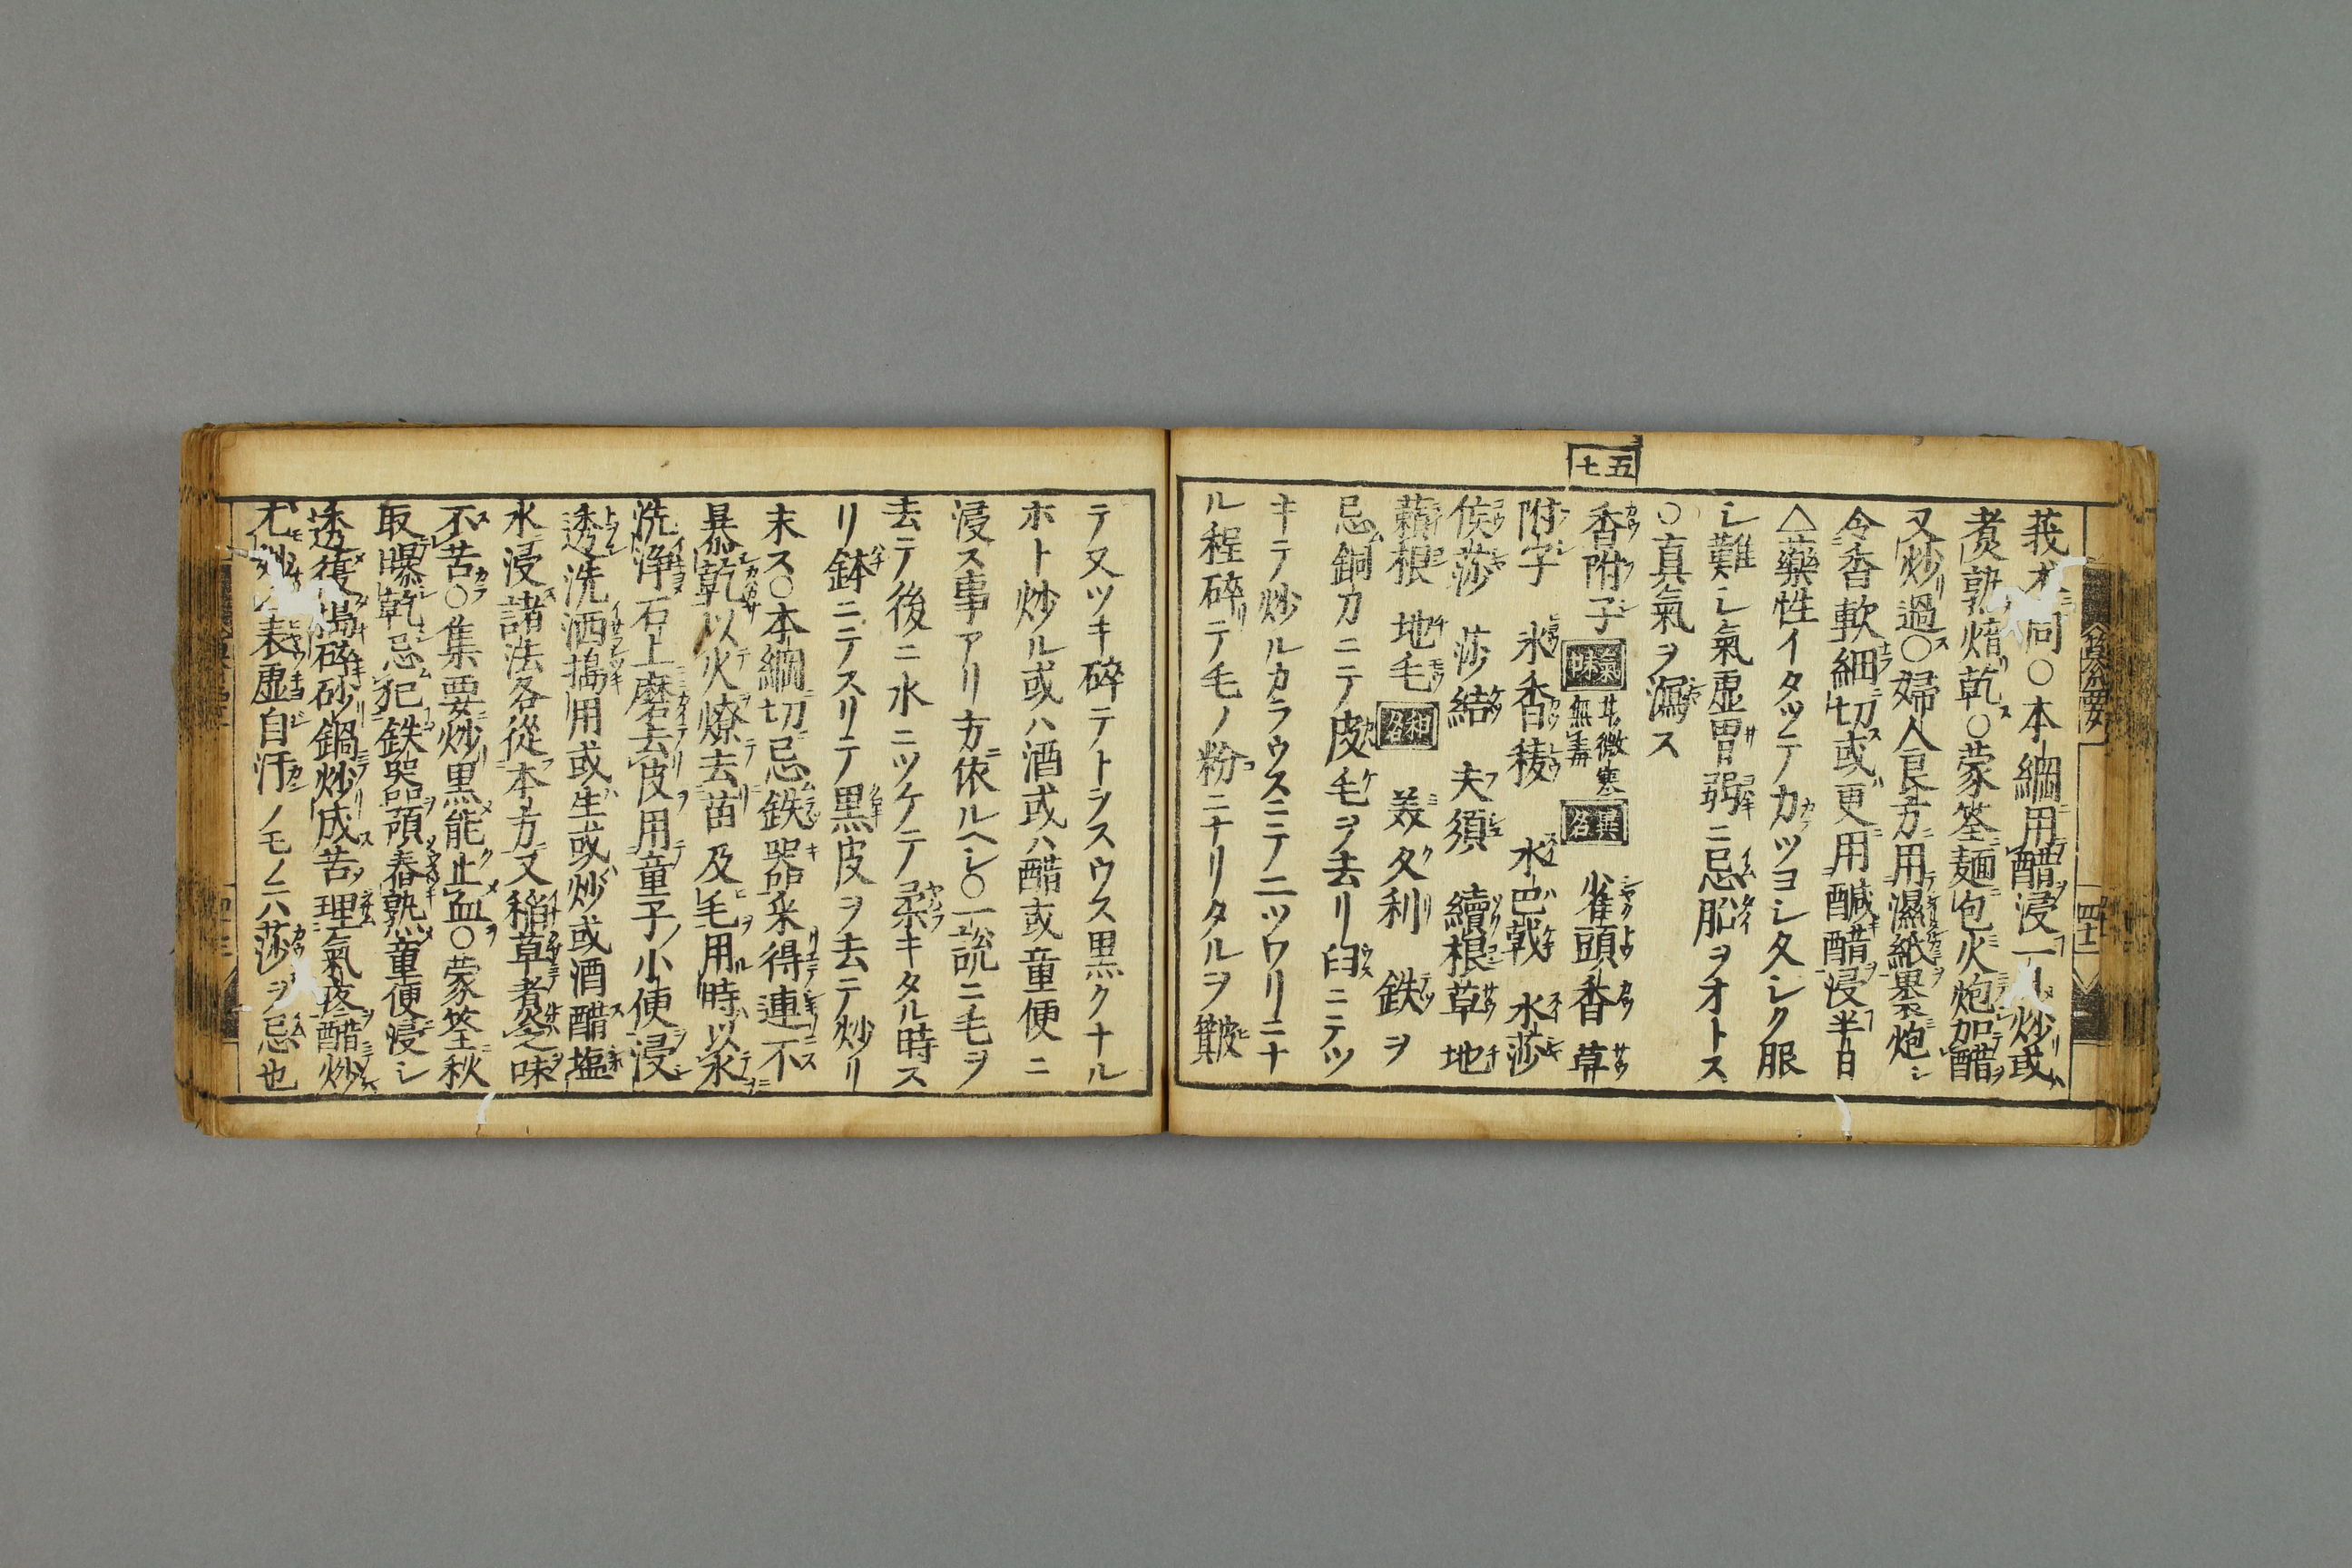 七五
莪朮同○本綱用醋浸一日炒或
煮熟焙乾○蒙筌麺包火炮加醋
又炒過○婦人良方用濕紙裹炮
令香軟細切或更用醎醋浸半日
△藥性イタツテカツヨシ久シク服
シ難シ氣虚胃弱ニ忌胎ヲオトス
○真氣ヲ瀉ス
香附子 氣味 甘微寒無毒 異名 雀頭香 草
附子 水香稜 水巴戟 水莎
侯莎 莎結 夫須 續根草 地
藾根 地毛 和名 美久利 鉄ヲ
忌銅カニテ皮毛ヲ去リ臼ニテツ
キテ炒ルカラウスニテ二ツワリニナ
ル程碎テ毛ノ粉ニナリタルヲ簸
テ又ツキ碎テトヲスウス黒クナル
ホト炒ル或ハ酒或ハ醋或童便ニ
浸ス事アリ方依ルヘシ○一説ニ毛ヲ
去テ後ニ水ニツケテ柔キタル時ス
リ鉢ニテスリテ黒皮ヲ去ニテ炒リ
末ス○本綱切忌鉄器采得連不
暴乾以火燎去苗及毛用時以水
洗浄石上磨去皮用童子小便浸
透洗洒搗用或生或炒或酒醋塩
水浸諸法各從本方又稲草煮之味
不苦○集要炒黒能止血○蒙筌秋
取曝乾忌犯鉄器預舂熟童便浸シ
透復搗碎砂鍋炒成苦理氣疼醋炒
尤妙△表虚自汗ノモノニハ莎ヲ忌也